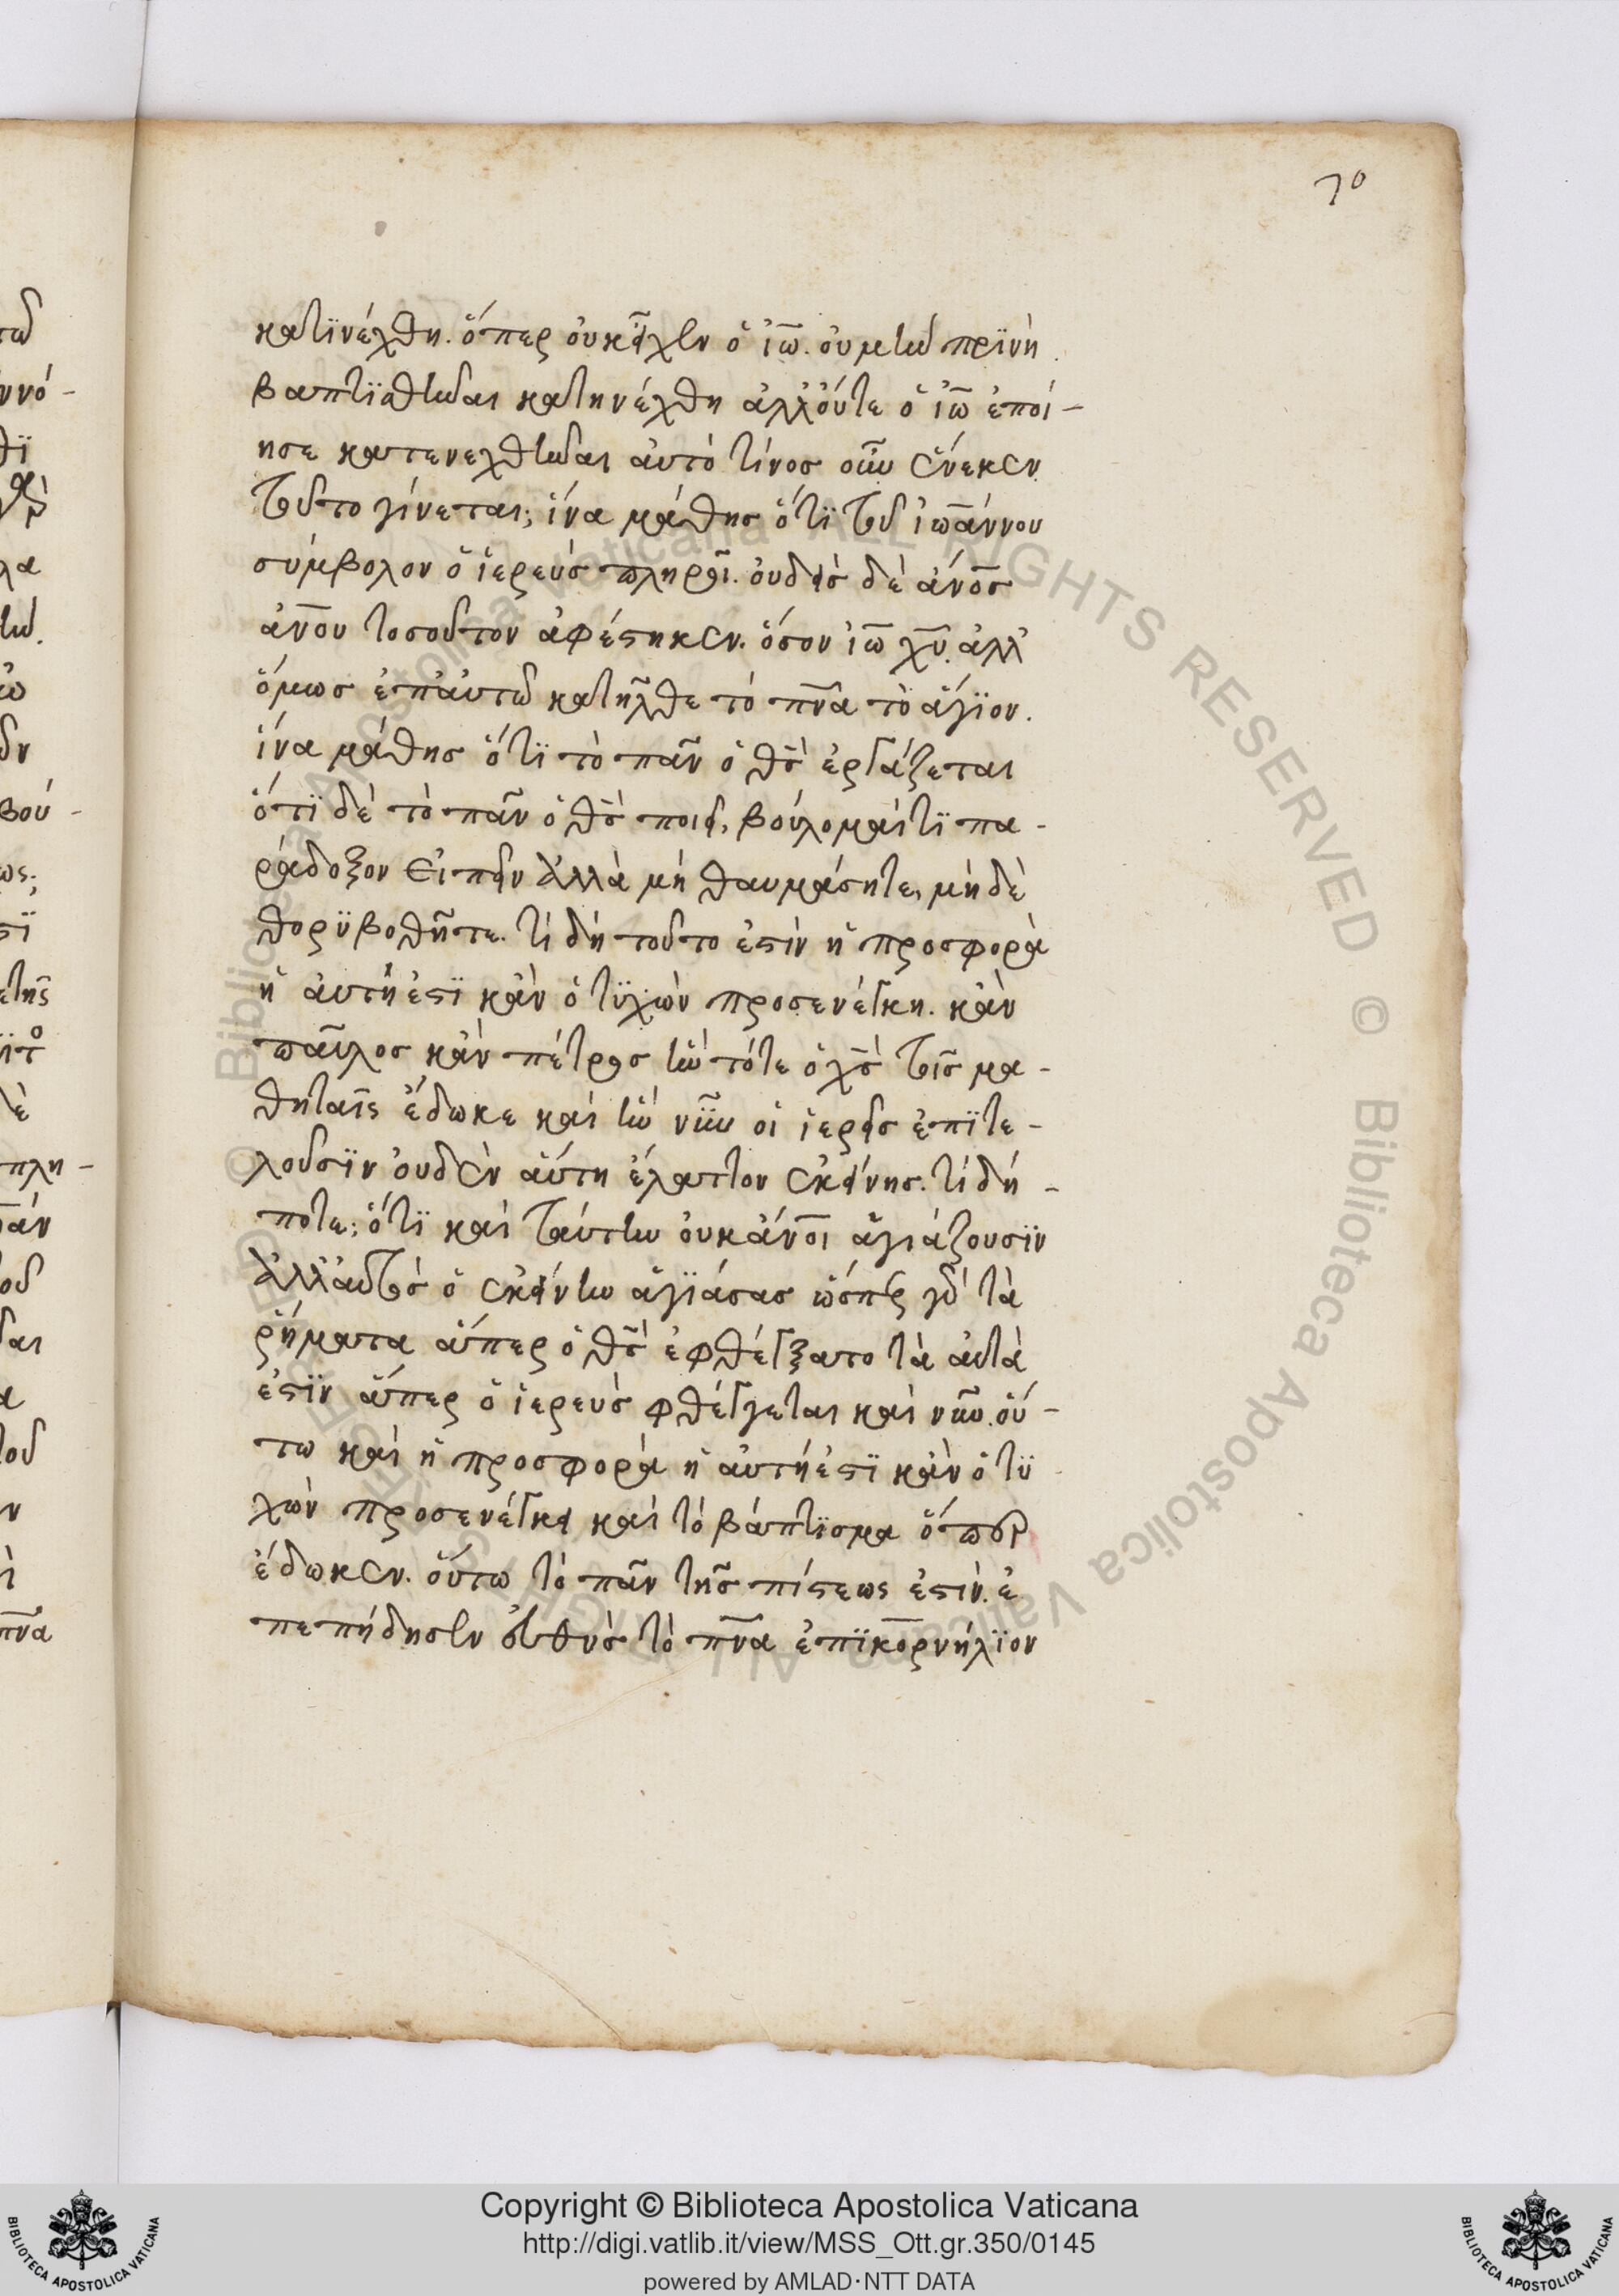 70
κατϊνέχθη. ὅπερ οὐκεῖχεν ὁ ἰω̅. οὐ μὴν πρϊνὴ
βαπτϊσθῆναι κατηνέχθη ἀλλ' οὔτε ὁ ἰω̅ ἐποί-
ησε κατενεχθῆναι ἀυτὸ τίνος οὖν ἕνεκεν
τοῦτο γίνεται; ἵνα μάθης ὅτϊ τοῦ ἰω̅άννου
σύμβολον ὁ ἱερεύς πληροῖ. ὀυδεὶς δὲ ἄνο̅ς
ἀνο̅υ τοσοῦτον ἀφέστηκεν. ὅσον ἰω̅ χυ̅. ἀλλ'
ὅμως ἐπ' ἀυτῶ κατῆλθε τὸ πνα̅ τὸ ἅγϊον.
ἵνα μάθης ὅτϊ τὸ πᾶν ὁ θς̅ ἐργάζεται
ὅτϊ δὲ τὸ πᾶν ὁ θς̅ ποιεῖ, βούλομαί τϊ πα-
ράδοξον εἰπεῖν ἀλλὰ μὴ θαυμάσητε, μὴ δὲ
θορϋβοθῆτε. τί δὴ τοῦτο ἐστὶν ἡ προσφορὰ
ἡ ἀυτὴ ἐστϊ κἂν ὁ τϋχὼν προσενέγκη. κἂν
παῦλος κἂν πέτρος ἣν τότε ὁ χς̅ τοῖς μα-
θηταῖς ἔδωκε καὶ ἣν νῦν οἱ ἱερεῖς ἐπϊτε-
λοῦσϊν ὀυδὲν ἅυτη ἔλαττον ἐκείνης. τί δή-
ποτε; ὅτϊ καὶ ταύτην ὀυκ ἄνο̅ι ἁγιάζουσϊν
ἀλλ' ἀυτὸς ὁ ἐκείνην ἁγϊάσας ὥσπερ γὰρ τὰ
ῥήματα ἅπερ ὁ θς̅ ἐφθέγξατο τὰ ἀυτὰ
ἐστϊν ἅπερ ὁ ἱερεὺς φθέγγεται καὶ νῦν. ὅυ-
τω καὶ ἡ προσφορὰ ἡ ἀυτή ἐστϊ κἂν ὁ τϋ
χὼν προσενέγκει καὶ τὸ βάπτϊσμα ὅπερ
ἔδωκεν. ὅυτω τὸ πᾶν τῆς πίστεως ἐστὶν. ἐ
πεπήδησεν ἐυθυὸς τὸ πνα̅ ἐπϊκορνήλϊον
Copyright © Biblioteca Apostolica Vaticana
http://digi.vatlib.it/view/MSS_Ott.gr.350/0145
powered by AMLAD·NTT DATA